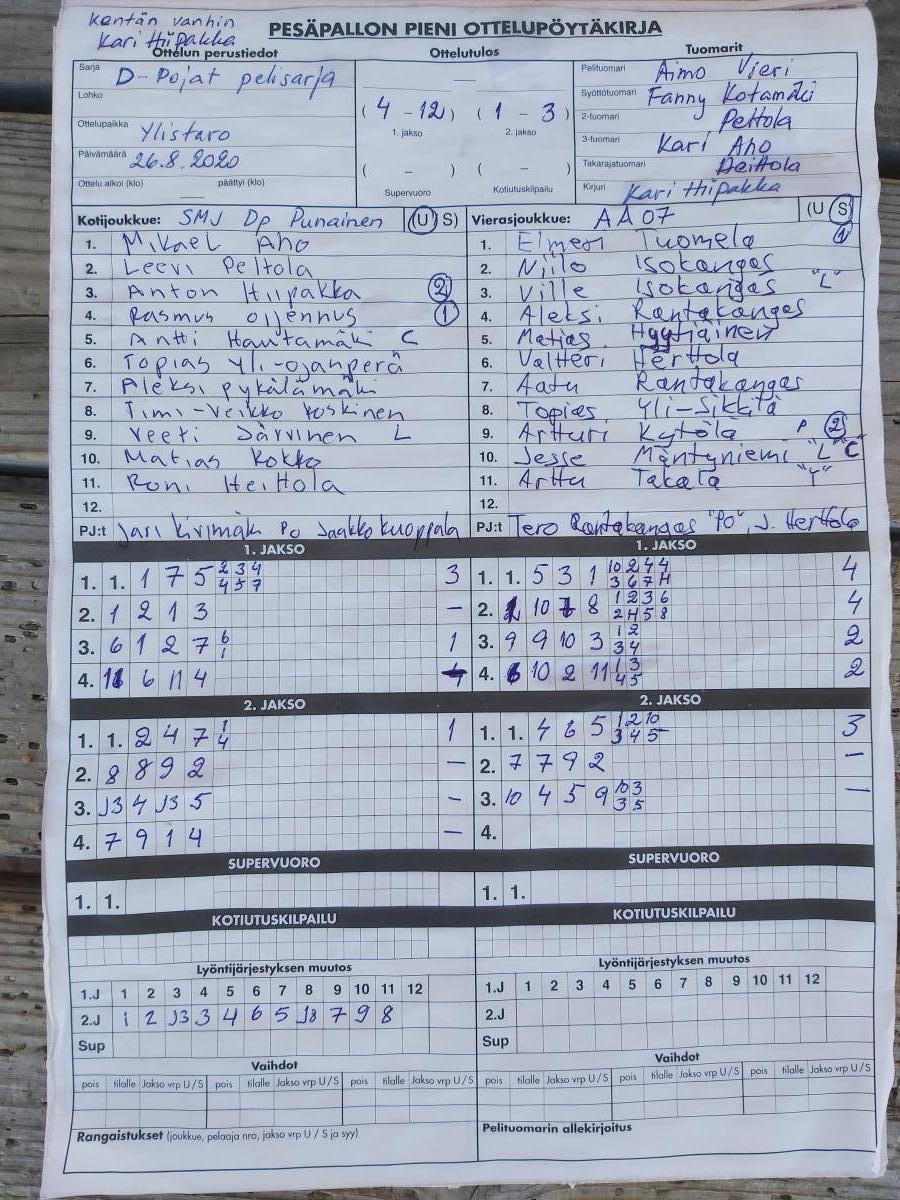 Kentän vanhin
Kari Hiipakka
PESÄPALLON PIENI OTTELUPÖYTÄKIRJA
Ottelun perustiedot Ottelutulos Tuomarit
Sarja D-Pojat pelisarja
Lohko
Ottelupaikka Ylistaro
Päivämäärä 26.8.2020
Ottelu alkoi (klo) päättyi (klo)
(4 - 12) (1 - 3)
1. jakso 2. jakso
( - ) ( - )
Supervuoro Kotiutuskilpailu
Pelituomari Aimo Vieri
Syöttötuomari Fanny Kotamäki
2-tuomari Peltola
3-tuomari Kari Aho
Takarajatuomari Heittola
Kirjuri Kari Hiipakka
Kotijoukkue: SMJ Dp Punainen (U S)
1. Mikael Aho
2. Leevi Peltola
3. Anton Hiipakka 2
4. Rasmus Ojennus 1
5. Antti Hautamäki C
6. Topias Yli-Ojanperä
7. Aleksi Pykälämäki
8. Timi-Veikko Koskinen
9. Veeti Järvinen L
10. Matias Kokko
11. Roni Heittola
12.
PJ:t Jari Kivimäki Po Jaakko Kuoppala
Vierasjoukkue: AA 07 (U S)
1. Elmeri Tuomela 1
2. Niilo Isokangas
3. Ville Isokangas "L"
4. Aleksi Rantakangas
5. Matias Hyytiäinen
6. Valtteri Herttola
7. Aatu Rantakangas
8. Topias Yli-Sikkilä
9. Artturi Kytölä P 2
10. Jesse Mäntyniemi "L" C
11. Arttu Takala "T"
12.
PJ:t Tero Rantakangas "PO", J. Herttola
1. JAKSO
1. 1. 1 7 5 2 3 4 3
4 5 7
2. 1 2 1 3 –
3. 6 1 2 7 6 1
1
4. 11 6 11 4
2. JAKSO
1. 1. 2 4 7 1 1
4
2. 8 8 9 2 –
3. J3 4 J3 5 –
4. 7 9 1 4 –
SUPERVUORO
1. 1.
KOTIUTUSKILPAILU
1. JAKSO
1. 1. 5 3 1 10 2 4 4 4
3 6 7 H
2. 10 8 1 2 3 6 4
2 H 5 8
3. 9 9 10 3 1 2 2
3 4
4. 10 2 11 1 3 2
4 5
2. JAKSO
1. 1. 4 6 5 1 2 10 3
3 4 5
2. 7 7 9 2 –
3. 10 4 5 9 10 3 –
3 5
4.
SUPERVUORO
1. 1.
KOTIUTUSKILPAILU
Lyöntijärjestyksen muutos
1.J 1 2 3 4 5 6 7 8 9 10 11 12
2.J 1 2 J3 3 4 6 5 J8 7 9 8
Sup
Vaihdot
pois tilalle Jakso vrp U / S pois tilalle Jakso vrp U / S pois tilalle Jakso vrp U / S
Rangaistukset (joukkue, pelaaja nro, jakso vrp U / S ja syy)
Lyöntijärjestyksen muutos
1.J 1 2 3 4 5 6 7 8 9 10 11 12
2.J
Sup
Vaihdot
pois tilalle Jakso vrp U / S pois tilalle Jakso vrp U / S pois tilalle Jakso vrp U / S
Pelituomarin allekirjoitus